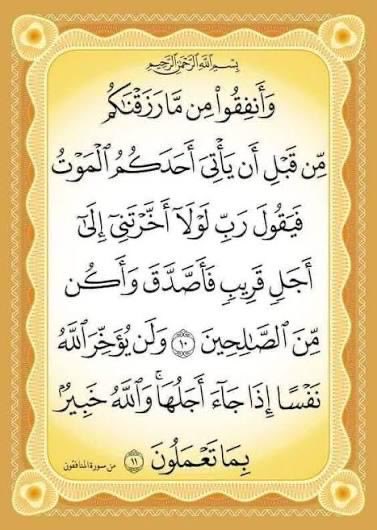 بِسْمِ اللَّهِ الرَّحْمَٰنِ الرَّحِيمِ
وَأَنفِقُوا۟ مِن مَّا رَزَقْنَـٰكُم
مِّن قَبْلِ أَن يَأْتِىَ أَحَدَكُمُ ٱلْمَوْتُ
فَيَقُولَ رَبِّ لَوْلَآ أَخَّرْتَنِىٓ إِلَىٰٓ
أَجَلٍ قَرِيبٍ فَأَصَّدَّقَ وَأَكُن
مِّنَ ٱلصَّـٰلِحِينَ ١٠ وَلَن يُؤَخِّرَ ٱللَّهُ
نَفْسًا إِذَا جَآءَ أَجَلُهَا ۚ وَٱللَّهُ خَبِيرٌۢ
بِمَا تَعْمَلُونَ ١١ من سورة المنافقون